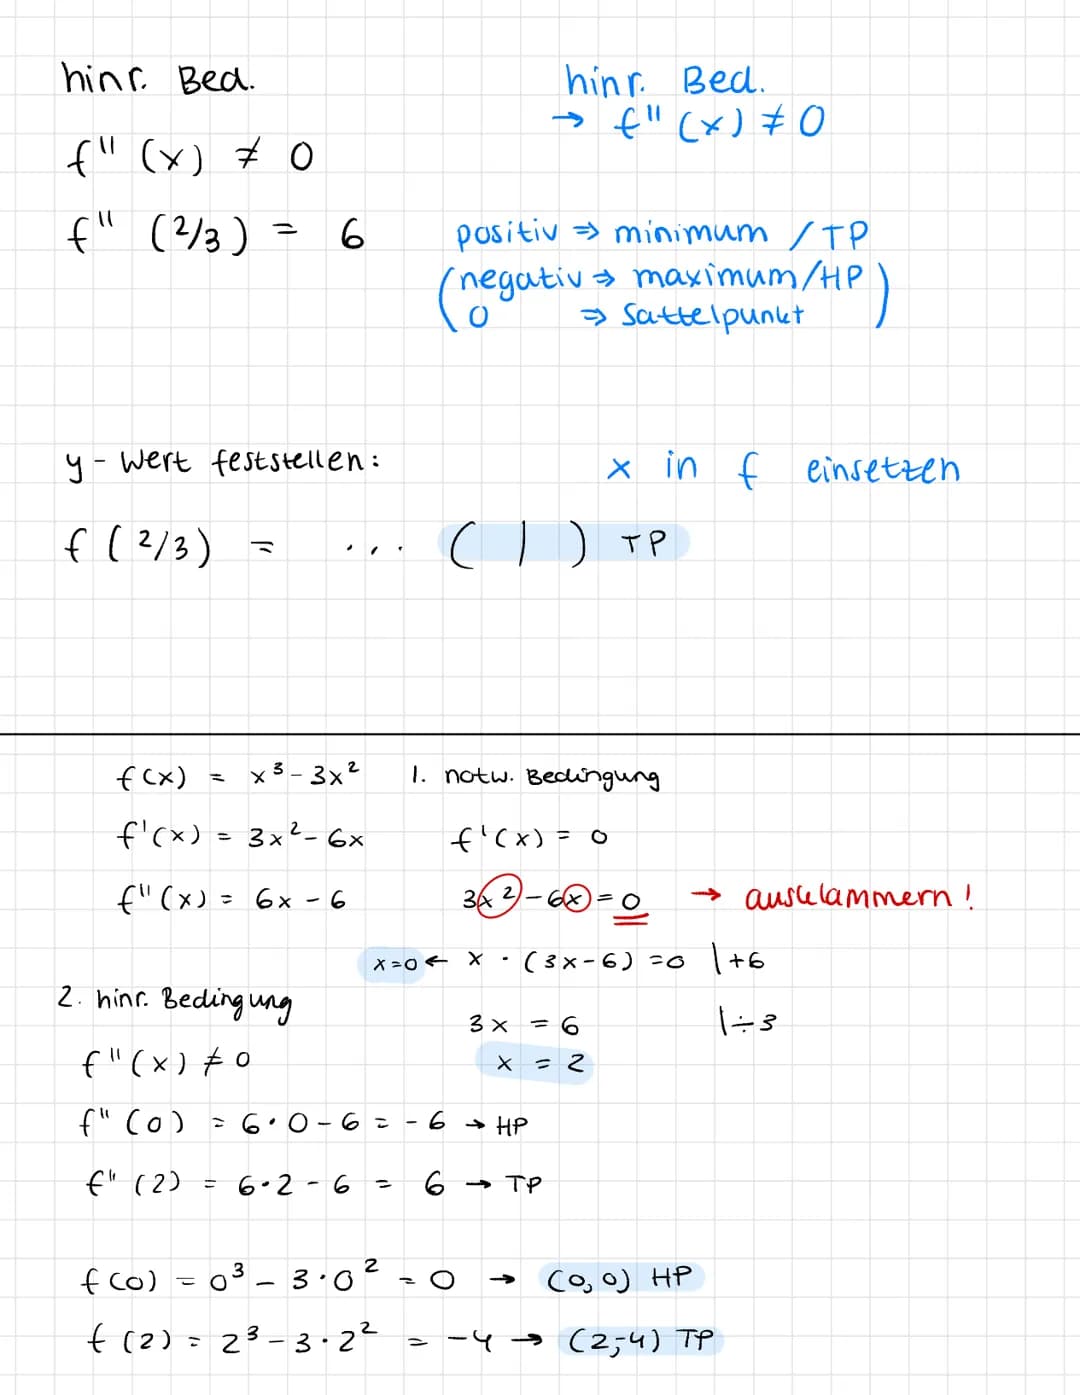 hinr. Bed.
f'' (x) ≠ 0
f'' (2/3) = 6
hinr. Bed.
→ f'' (x) ≠ 0
positiv ⇒ minimum / TP
(negativ ⇒ maximum/HP)
0 ⇒ Sattelpunkt
y - Wert feststellen:
x in f einsetzen
f (2/3) = ... ( | ) TP
f(x) = x³ - 3x²
f'(x) = 3x² - 6x
f''(x) = 6x - 6
1. notw. Bedingung
f'(x) = 0
3x² - 6x = 0 → ausklammern!
x=0 ← x · (3x-6) = 0 | +6
3x = 6 | ÷3
x = 2
2. hinr. Bedingung
f''(x) ≠ 0
f'' (0) = 6·0-6 = -6 → HP
f'' (2) = 6·2 - 6 = 6 → TP
f(0) = 0³ - 3·0² = 0 → (0,0) HP
f (2) = 2³ - 3·2² = -4 → (2;-4) TP